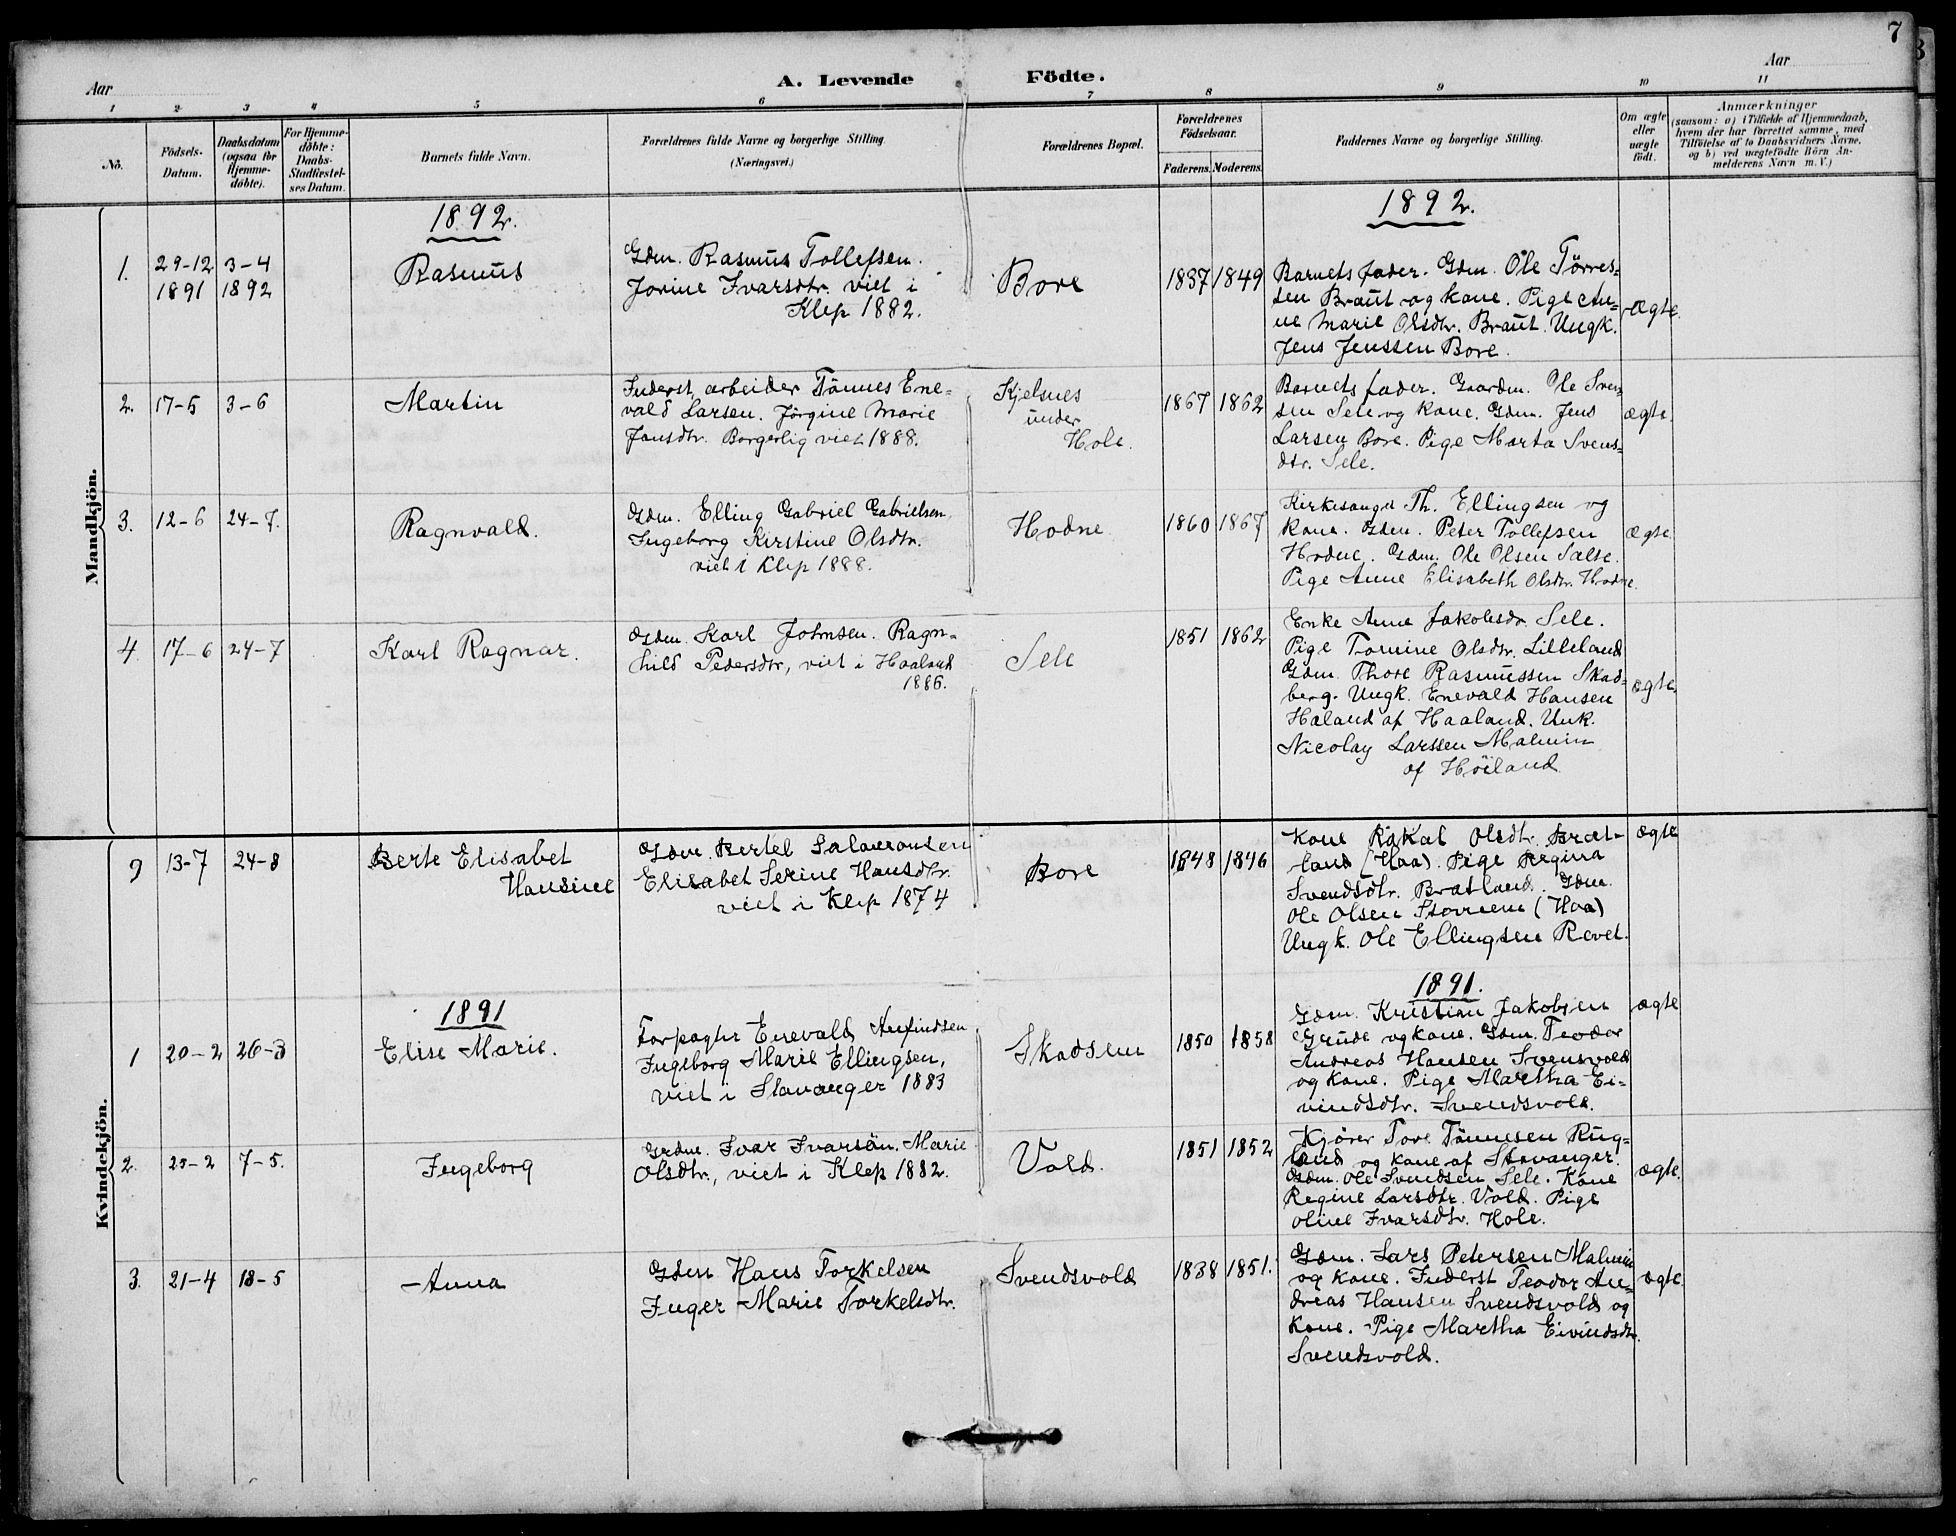 7
Aar
A. Levende Födte.
Aar
1 2 3 4 5 6 7 8 9 10 11
No.
Födsels-Datum.
Daabsdatum (ogsaa for Hjemme-döbte).
For Hjemme-döbte: Daabs-Stadfæstel-ses Datum.
Barnets fulde Navn.
Forældrenes fulde Navne og borgerlige Stilling
(Næringsvei.)
Forældrenes Bopæl.
Forældrenes Födselsaar.
Faderens. Moderens.
Faddernes Navne og borgerlige Stilling.
Om ægte eller uægte födt.
Anmærkninger
(saasom: a) i Tilfælde af Hjemmedaab, hvem der har forrettet samme, med Tilföielse af to Daabsvidners Navne, og b) ved uægtefödte Börn An-melderens Navn m. V.)
Mandkjön.
1892.
1892.
1. 29-12 1891 3-4 1892
Rasmus
Gdm. Rasmus Tollefsen.
Jorine Ivarsdtr. viet i
Klep 1882.
Bore
1837 1849
Barnets fader. Gdm. Ole Törres=
sen Braut og kone. Pige An=
ne Marie Olsdtr. Braut. Ungk.
Jens Jenssen Bore.
Ægte.
2. 17-5 3-6
Martin
Inderst, arbeider Tönnes Ene=
vald Larsen. Jörgine Marie
Jonsdtr. Borgerlig viet 1888.
Kjelsnes
under
Hole.
1867 1862
Barnets fader. Gaardm. Ole Sven=
sen Sele og kone. Gdm. Jens
Larsen Bore. Pige Marta Svens=
dtr. Sele.
ægte.
3. 12-6 24-7.
Ragnvald.
Gdm. Elling Gabriel Gabrielsen.
Ingeborg Kirstine Olsdtr.
viet i Klep 1888.
Hodne
1860 1867
Kirkesanger Th. Ellingsen og
kone. Gdm. Peter Tollefsen
Hodne. Gdm. Ole Olsen Salte.
Pige Anne Elisabeth Olsdtr. Hodne
ægte.
4. 17-6 24-7
Karl Ragnar.
Gdm. Karl Johnsen. Ragn=
hild Pedersdtr, viet i Haaland
1886.
Sele
1851 1862
Enke Anne Jakobsdr. Sele.
Pige Tomine Olsdtr. Lilleland
Gdm. Thore Rasmussen Skad=
berg. Ungk. Enevald Hansen
Haland af Haaland. Unk.
Nicolay Larssen Malmin
af Höiland
ægte.
Kvindekjön.
9 13-7 24-8
Berte Elisabet
Hansine
Gdm. Bertel Salamonsen
Elisabet Serine Hansdtr.
viet i Klep 1874
Bore
1848 1846
Kone Rakal Olsdtr. Brat-
land (Haa). Pige Regina
Svendsdtr. Bratland. Gdm.
Ole Olsen (Haa)
Ungk. Ole Ellingsen Revet.
ægte
1891
1891.
1 20-2 26-3
Elise Marie.
Forpagter Enevald Anfindsen
Ingeborg Marie Ellingsen,
viet i Stavanger 1883
Skadsem
1850 1858
Gdm. Kristian Jakobsen
Grude og kone. Gdm. Teodor
Andreas Hansen Svensvold
og kone. Pige Martha Ei-
vindsdtr. Svendsvold.
ægte
2. 25-2 7-5.
Ingeborg
Grdm. Ivar Ivarsön. Marie
Olsdtr., viet i Klep 1882.
Vold.
1851 1852
Kjörer Tore Tönnesen Rug=
land og kone af Stavanger.
Gdm. Ole Svendsen Sele. Kone
Regine Larsdtr. Vold. Pige
Oline Ivarsdtr. Hole.
ægte.
3. 21-4 18-5
Anna
Gdm Hans Torkelsen
Inger Marie Torkelsdtr.
Svendsvold
1838 1851.
Gdm. Lars Petersen Malmin
og kone. Inderst Teodor An=
dreas Hansen Svendsvold og
kone. Pige Martha Eivindsdtr.
Svendsvold.
ægte.